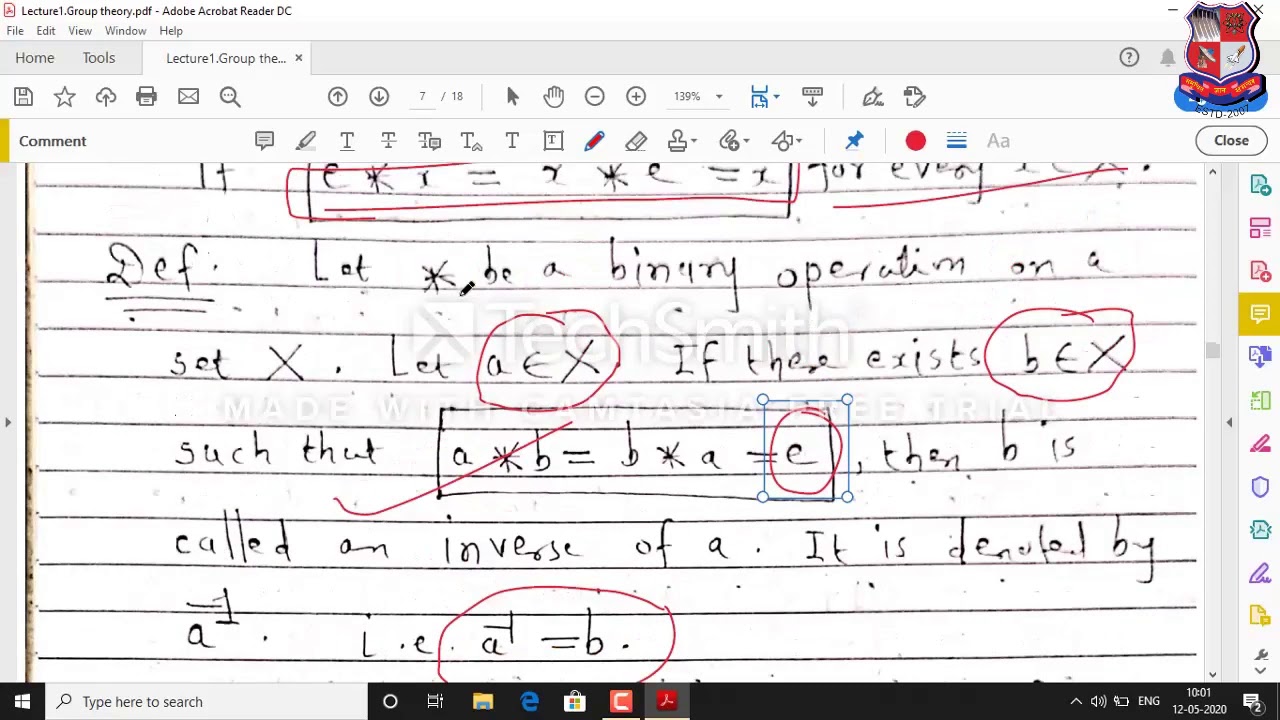 Lecture1.Group theory.pdf - Adobe Acrobat Reader DC
File Edit View Window Help
Home Tools Lecture1.Group the... ×
7 / 18 139%
Comment T T T T Aa Close
ESTD-2007
If e * x = x * e = x for every x ∈ X.
Def. Let * be a binary operation on a
set X. Let a ∈ X If there exists b ∈ X
such that a * b = b * a = e, then b is
called an inverse of a. It is denoted by
a⁻¹. i.e. a⁻¹ = b.
TechSmith
MADE WITH CAMTASIA FREE TRIAL
Type here to search
ENG
10:01
12-05-2020
2